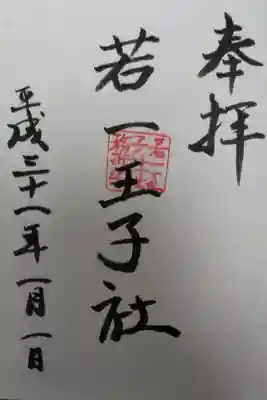 奉拝
若一王子社
平成三十一年一月一日